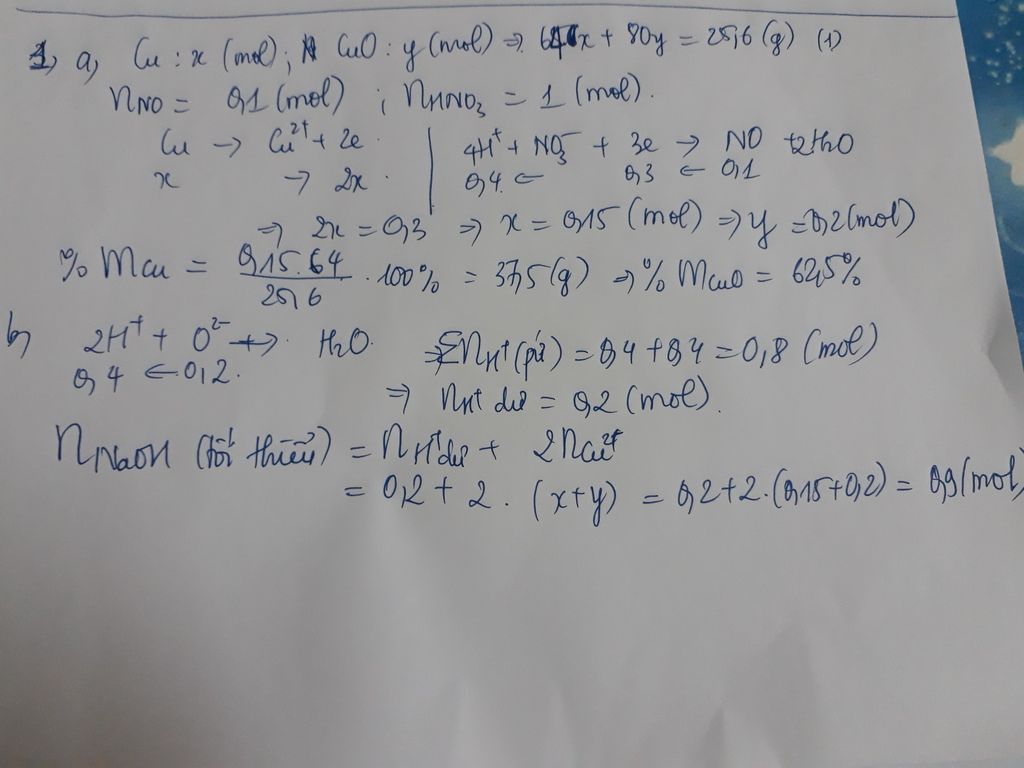 1, a, Cu : x (mol) ; CuO : y (mol) => 64x + 80y = 25,6 (g) (1)
nNO = 0,1 (mol) ; nHNO₃ = 1 (mol).
Cu -> Cu²⁺ + 2e | 4H⁺ + NO₃⁻ + 3e -> NO + 2H₂O
x -> 2x . | 0,4 <- 0,3 <- 0,1
=> 2x = 0,3 => x = 0,15 (mol) => y = 0,2 (mol)
% mCu = 0,15.64/25,6 . 100% = 37,5 (g) => % mCuO = 62,5%
b, 2H⁺ + O²⁻ -> H₂O => ΣnH⁺ (pứ) = 0,4 + 0,4 = 0,8 (mol)
0,4 <- 0,2. => nH⁺ dư = 0,2 (mol).
nNaOH (tối thiểu) = nH⁺dư + 2nCu²⁺
= 0,2 + 2 . (x+y) = 0,2 + 2.(0,15+0,2) = 0,9 (mol)